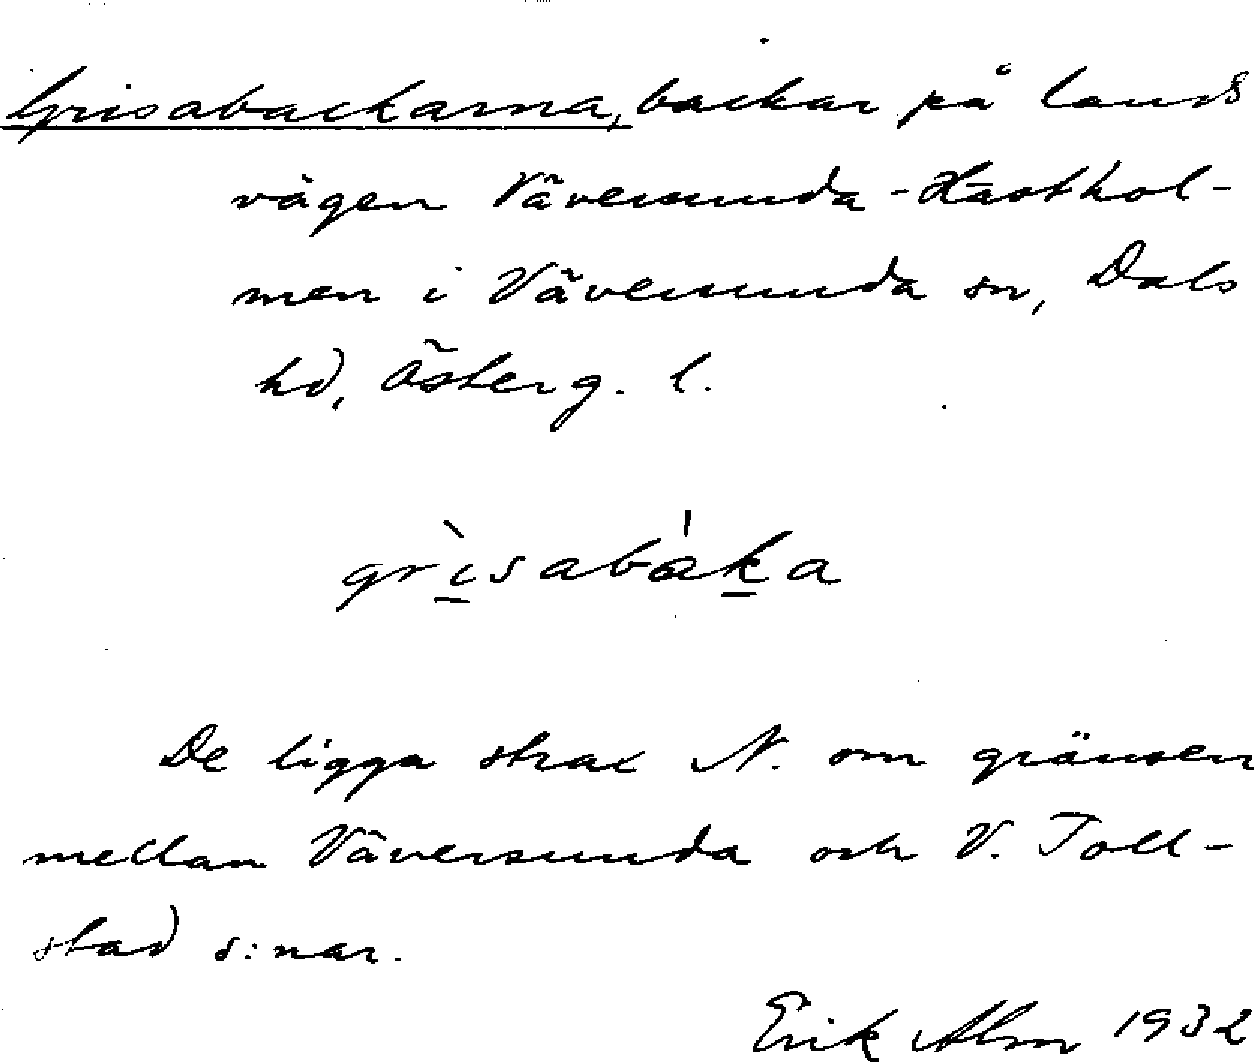 Grisabackarna, backar på lands
vägen Väversunda - Hästhol-
men i Väversunda sn, Dals
hd, Österg. l.
grìsabáka
De ligga strax N. om gränsen
mellan Väversunda och V. Toll-
stad s:nar.
Erik Alm 1932